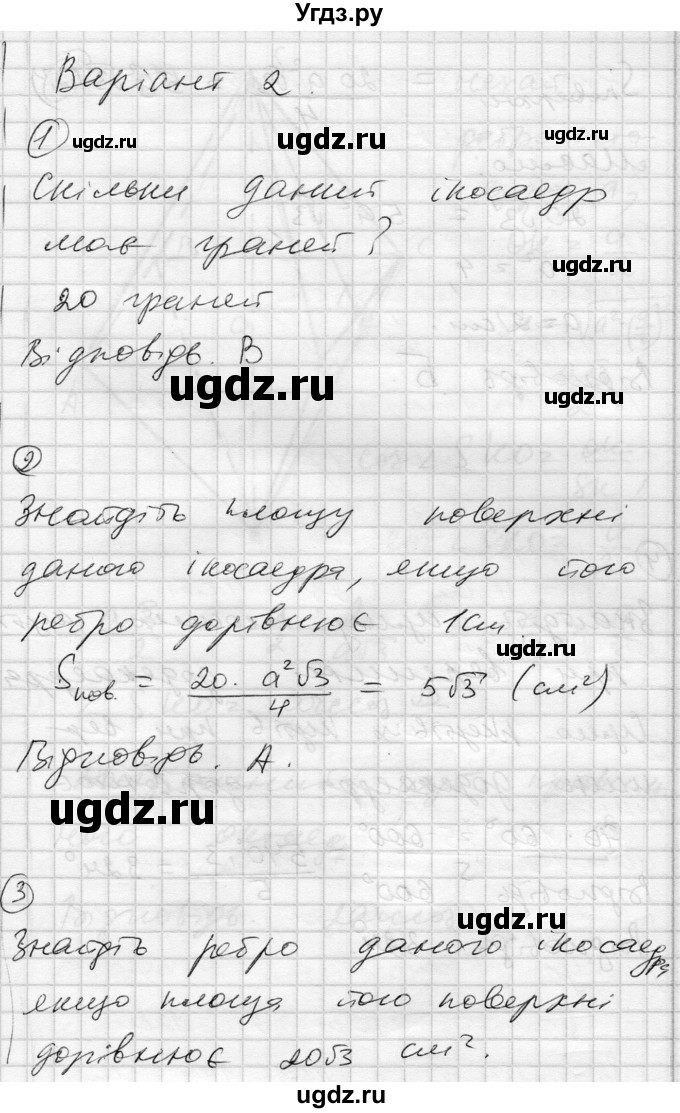 Угдз.ру
Варіант 2.
① ugdz.ru ugdz.ru ugdz.ru
Скільки даний ікосаедр
має граней?
ugdz.ru
20 граней
Відповідь. В
ugdz.ru ugdz.ru
②
Знайдіть площу поверхні
даного ікосаедра, якщо його
ребро дорівнює 1см.
ugdz.ru
Sпов. = 20 · a²√3 / 4 = 5√3 (см²)
Відповідь. А.
ugdz.ru ugdz.ru
③ ugdz.ru
Знайдіть ребро даного ікосаедра,
якщо площа його поверхні
дорівнює 20√3 см².
ugdz.ru